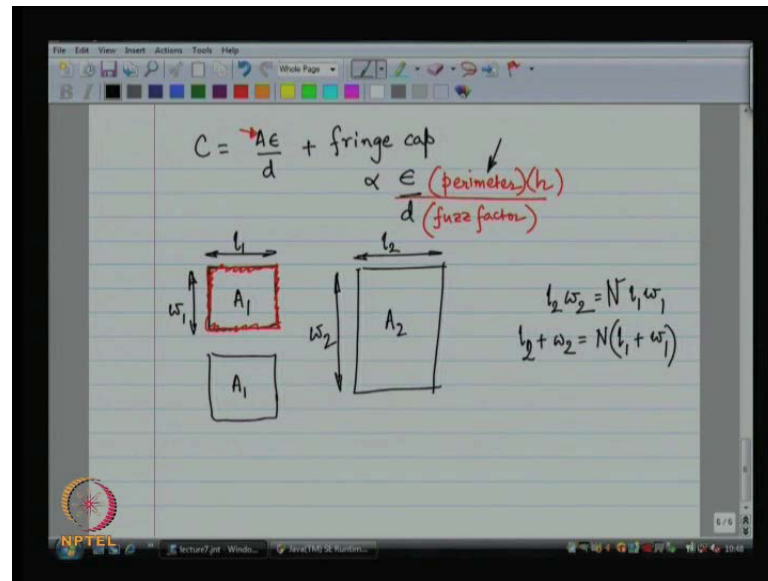 File Edit View Insert Actions Tools Help
Whole Page
B I
C = Aε/d + fringe cap
∝ ε (perimeter)(h) / d (fuzz factor)
l₁
l₂
w₁
A₁
w₂
A₂
l₂ w₂ = N l₁ w₁
l₂ + w₂ = N(l₁ + w₁)
A₁
6/6
NPTEL
lecture7.jnt - Windo...
Java(TM) SE Runtim...
10:48